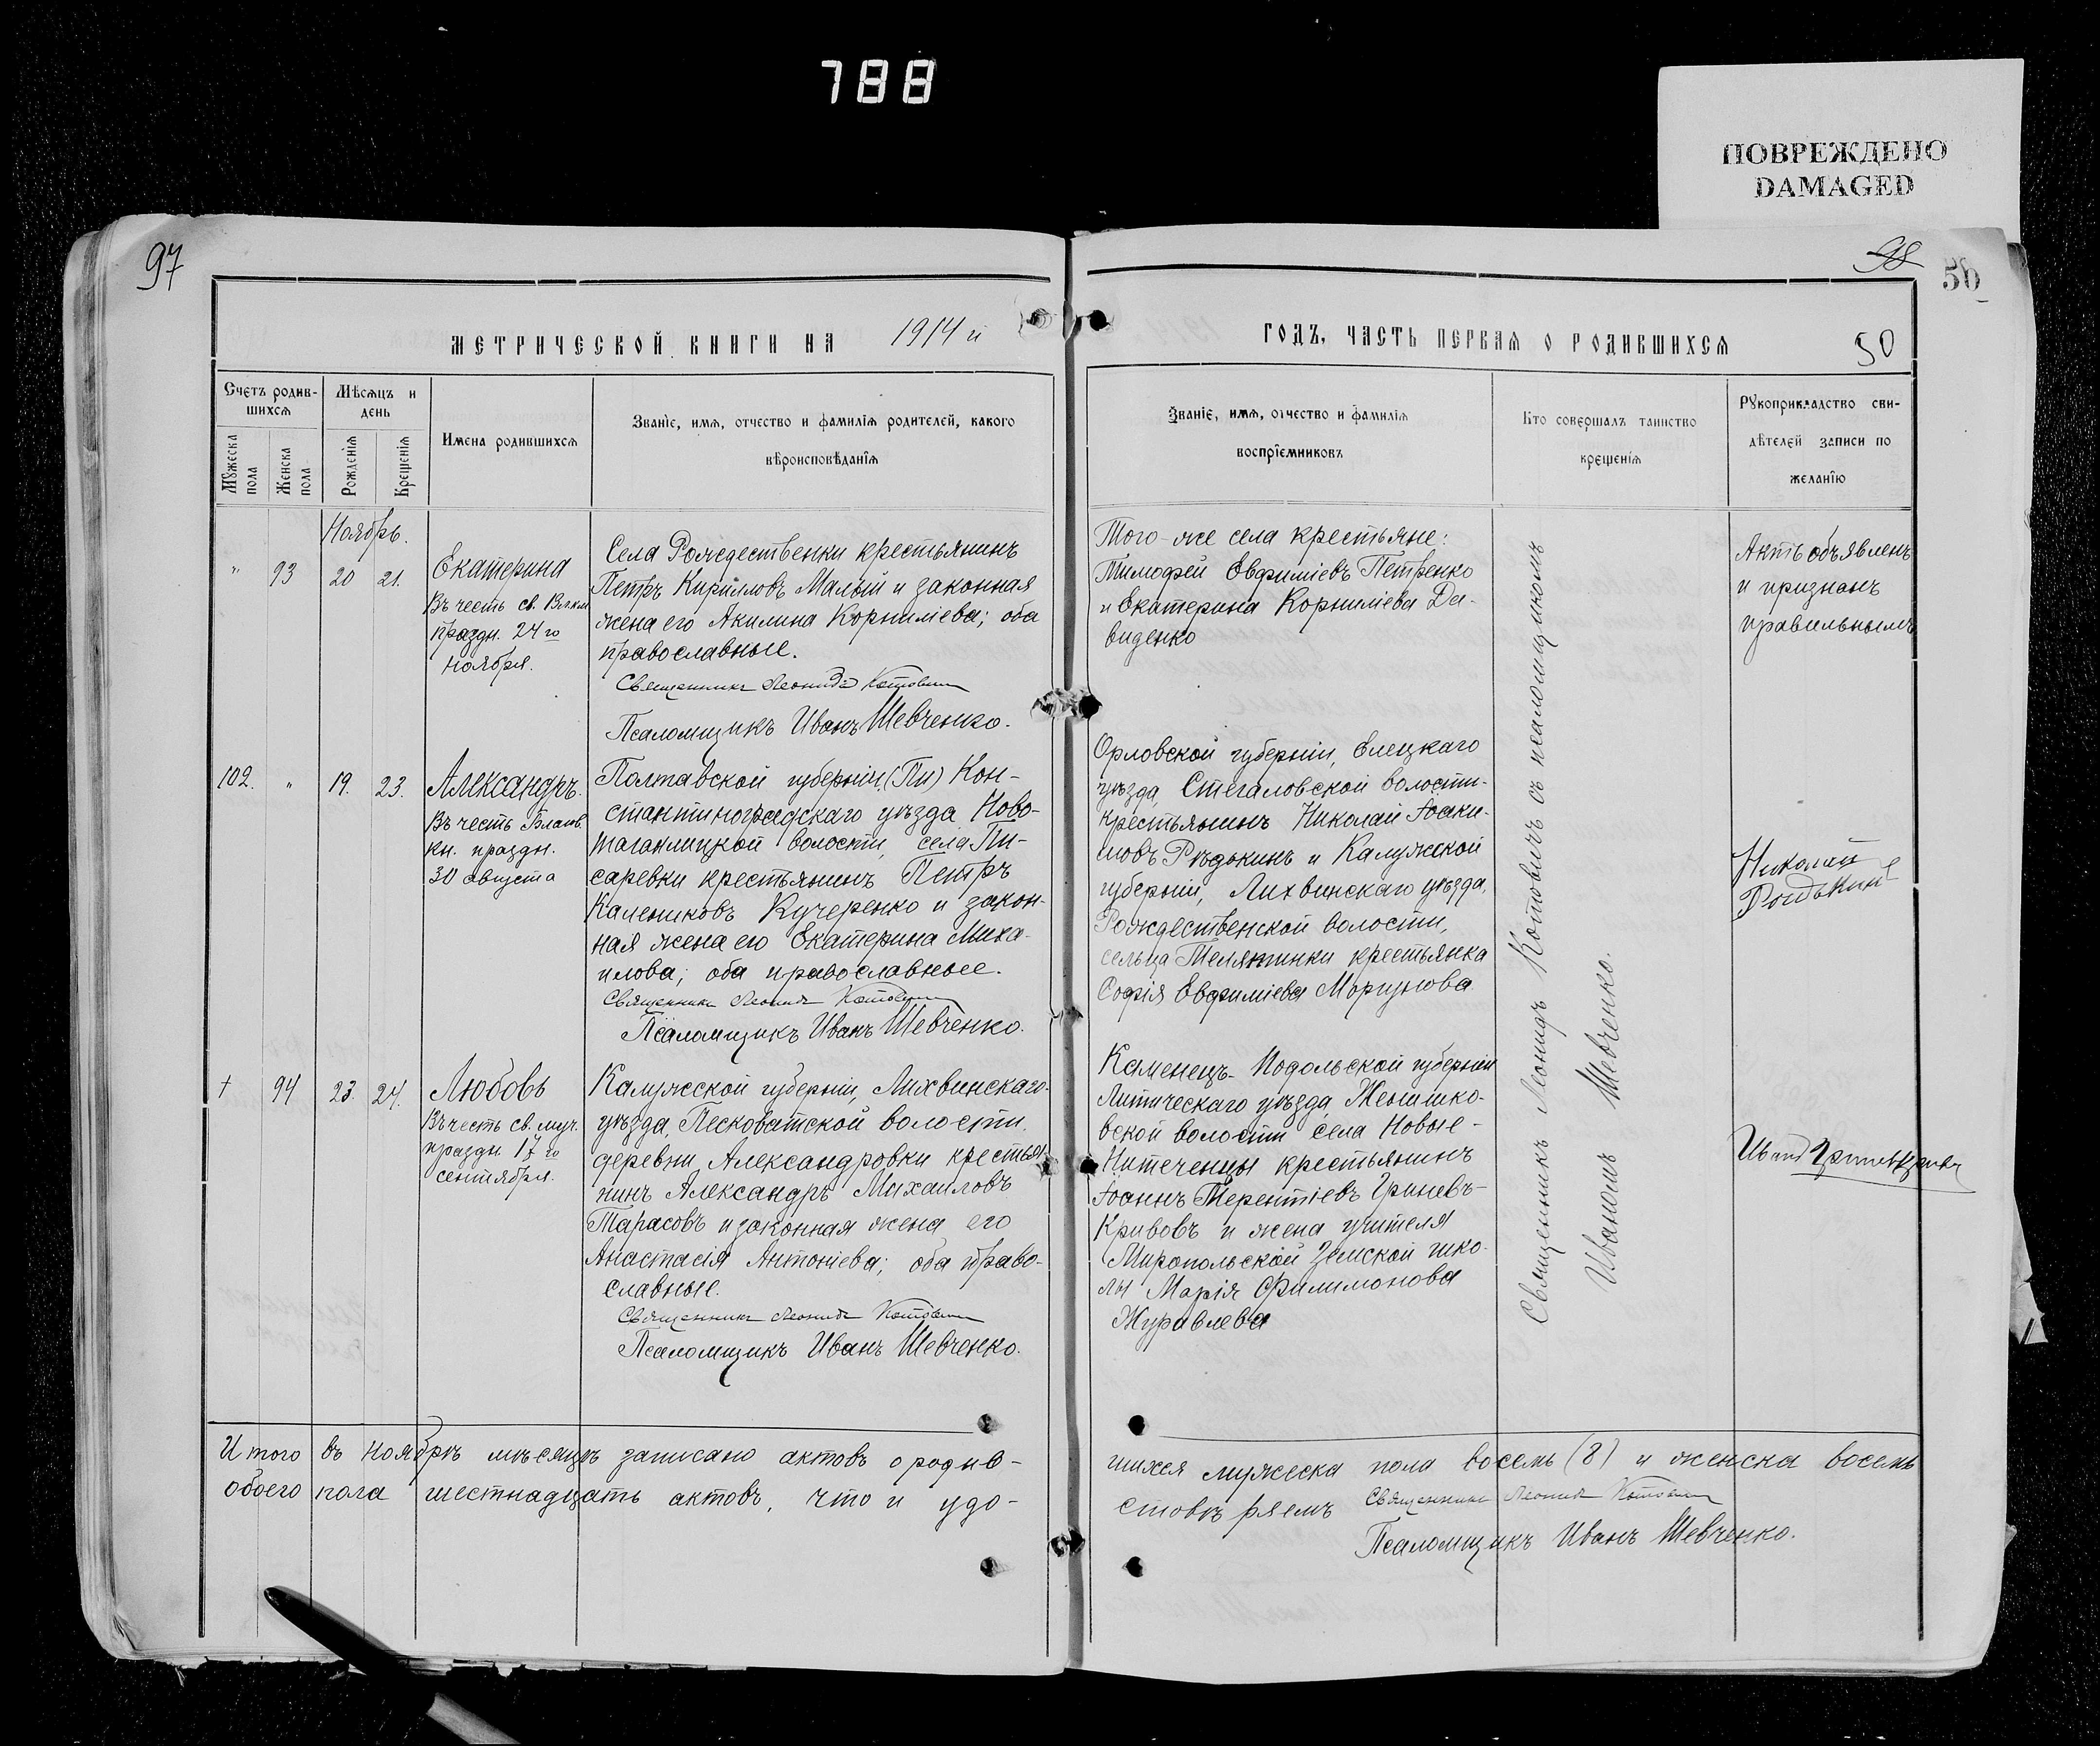 788
ПОВРЕЖДЕНО
DAMAGED
97
МЕТРИЧЕСКОЙ КНИГИ НА 1914 й
Счетъ родив-
шихся
Мѣсяцъ и
день
Мужеска
пола
Женска
пола
Рожденія
Крещенія
Имена родившихся
Званіе, имя, отчество и фамилія родителей, какого
вѣроисповѣданія
Ноябрь.
" 93 20 21.
Екатерина
Въ честь св. Влкм.
праздн. 24 го
ноября.
Села Рождественки крестьянинъ
Петръ Кирилловъ Малый и законная
жена его Акилина Корниліева; оба
православные.
Священникъ Леонидъ Котовичъ
Псаломщикъ Иванъ Шевченко.
102. " 19. 23.
Александръ.
Въ честь Благов.
кн. праздн.
30 августа
Полтавской губерніи, (Пи) Кон-
стантиноградскаго уѣзда Ново-
тагамлицкой волости, села Пи-
саревки крестьянинъ Петръ
Калениковъ Кучеренко и закон-
ная жена его Екатерина Миха-
илова; оба православные.
Священникъ Леонидъ Котовичъ
Псаломщикъ Иванъ Шевченко.
† 94 23. 24.
Любовь
Въ честь св. муч.
праздн. 17 го
сентября.
Калужской губерніи, Лихвинскаго
уѣзда, Песковатской волости,
деревни Александровки крестья-
нинъ Александръ Михаиловъ
Тарасовъ и законная жена его
Анастасія Антоніева; оба право-
славные.
Священникъ Леонидъ Котовичъ
Псаломщикъ Иванъ Шевченко.
Итого въ ноябрѣ мѣсяцѣ записано актовъ о родив-
обоего пола шестнадцать актовъ, что и удо-
98
50
ГОДЪ, ЧАСТЬ ПЕРВАЯ О РОДИВШИХСЯ
50
Званіе, имя, отчество и фамилія
воспріемниковъ
Кто совершалъ таинство
крещенія
Рукоприкладство сви-
дѣтелей записи по
желанію
Того-же села крестьяне:
Тимофей Евфиміевъ Петренко
и Екатерина Корниліева Да-
виденко
Актъ объявленъ
и признанъ
правильнымъ
Орловской губерніи, Елецкаго
уѣзда, Стегаловской волости-
крестьянинъ Николай Іоаки-
мовъ Рѣдькинъ и Калужской
губерніи, Лихвинскаго уѣзда,
Рождественской волости,
сельца Телятинки крестьянка
Софія Евфиміева Моргунова
Николай
Редькинъ
Каменецъ-Подольской губерніи
Литическаго уѣзда, Женишко-
вской волости села Новые-
Нитеченцы крестьянинъ
Іоаннъ Терентіевъ Гриневъ-
Кривовъ и жена учителя
Миропольской Земской шко-
лы Марія Филимонова
Журавлева
Священникъ Леонидъ Котовичъ съ псаломщикомъ
Иваномъ Шевченко.
шихся мужеска пола восемь (8) и женска восемь
стовѣряемъ Священникъ Леонидъ Котовичъ
Псаломщикъ Иванъ Шевченко.